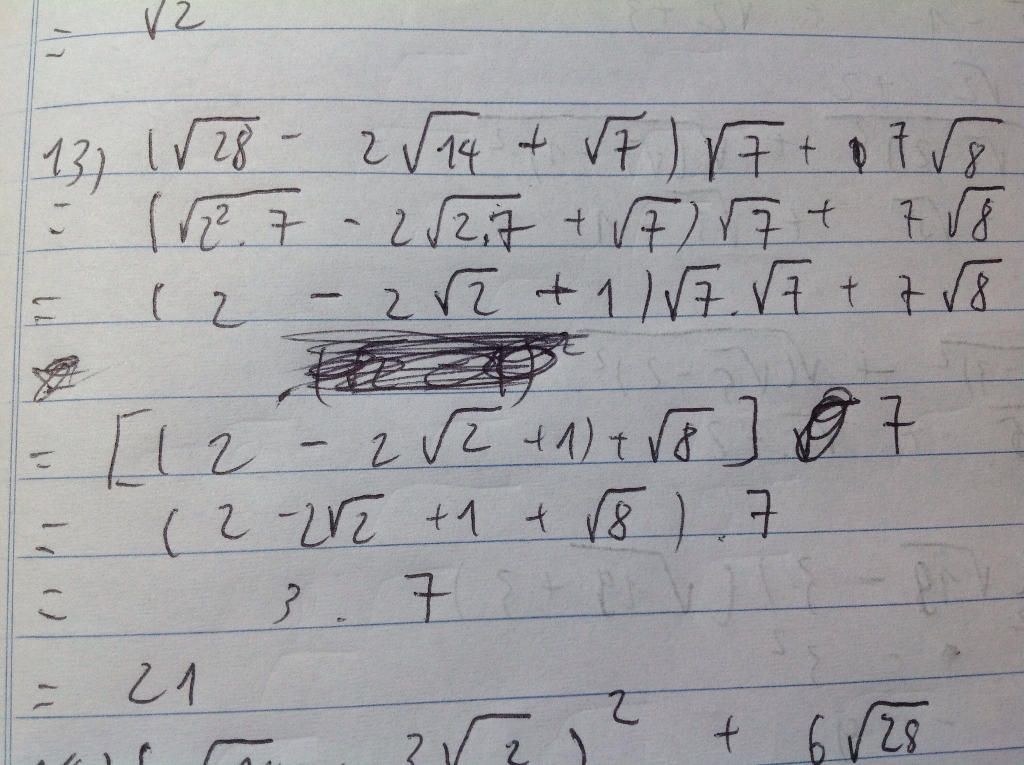 = √2
13) (√28 - 2√14 + √7)√7 + 7√8
= (√2².7 - 2√2.7 + √7)√7 + 7√8
= (2 - 2√2 + 1)√7.√7 + 7√8
= [(2 - 2√2 + 1) + √8] 7
= (2 - 2√2 + 1 + √8).7
= 3.7
= 21
2√2)² + 6√28